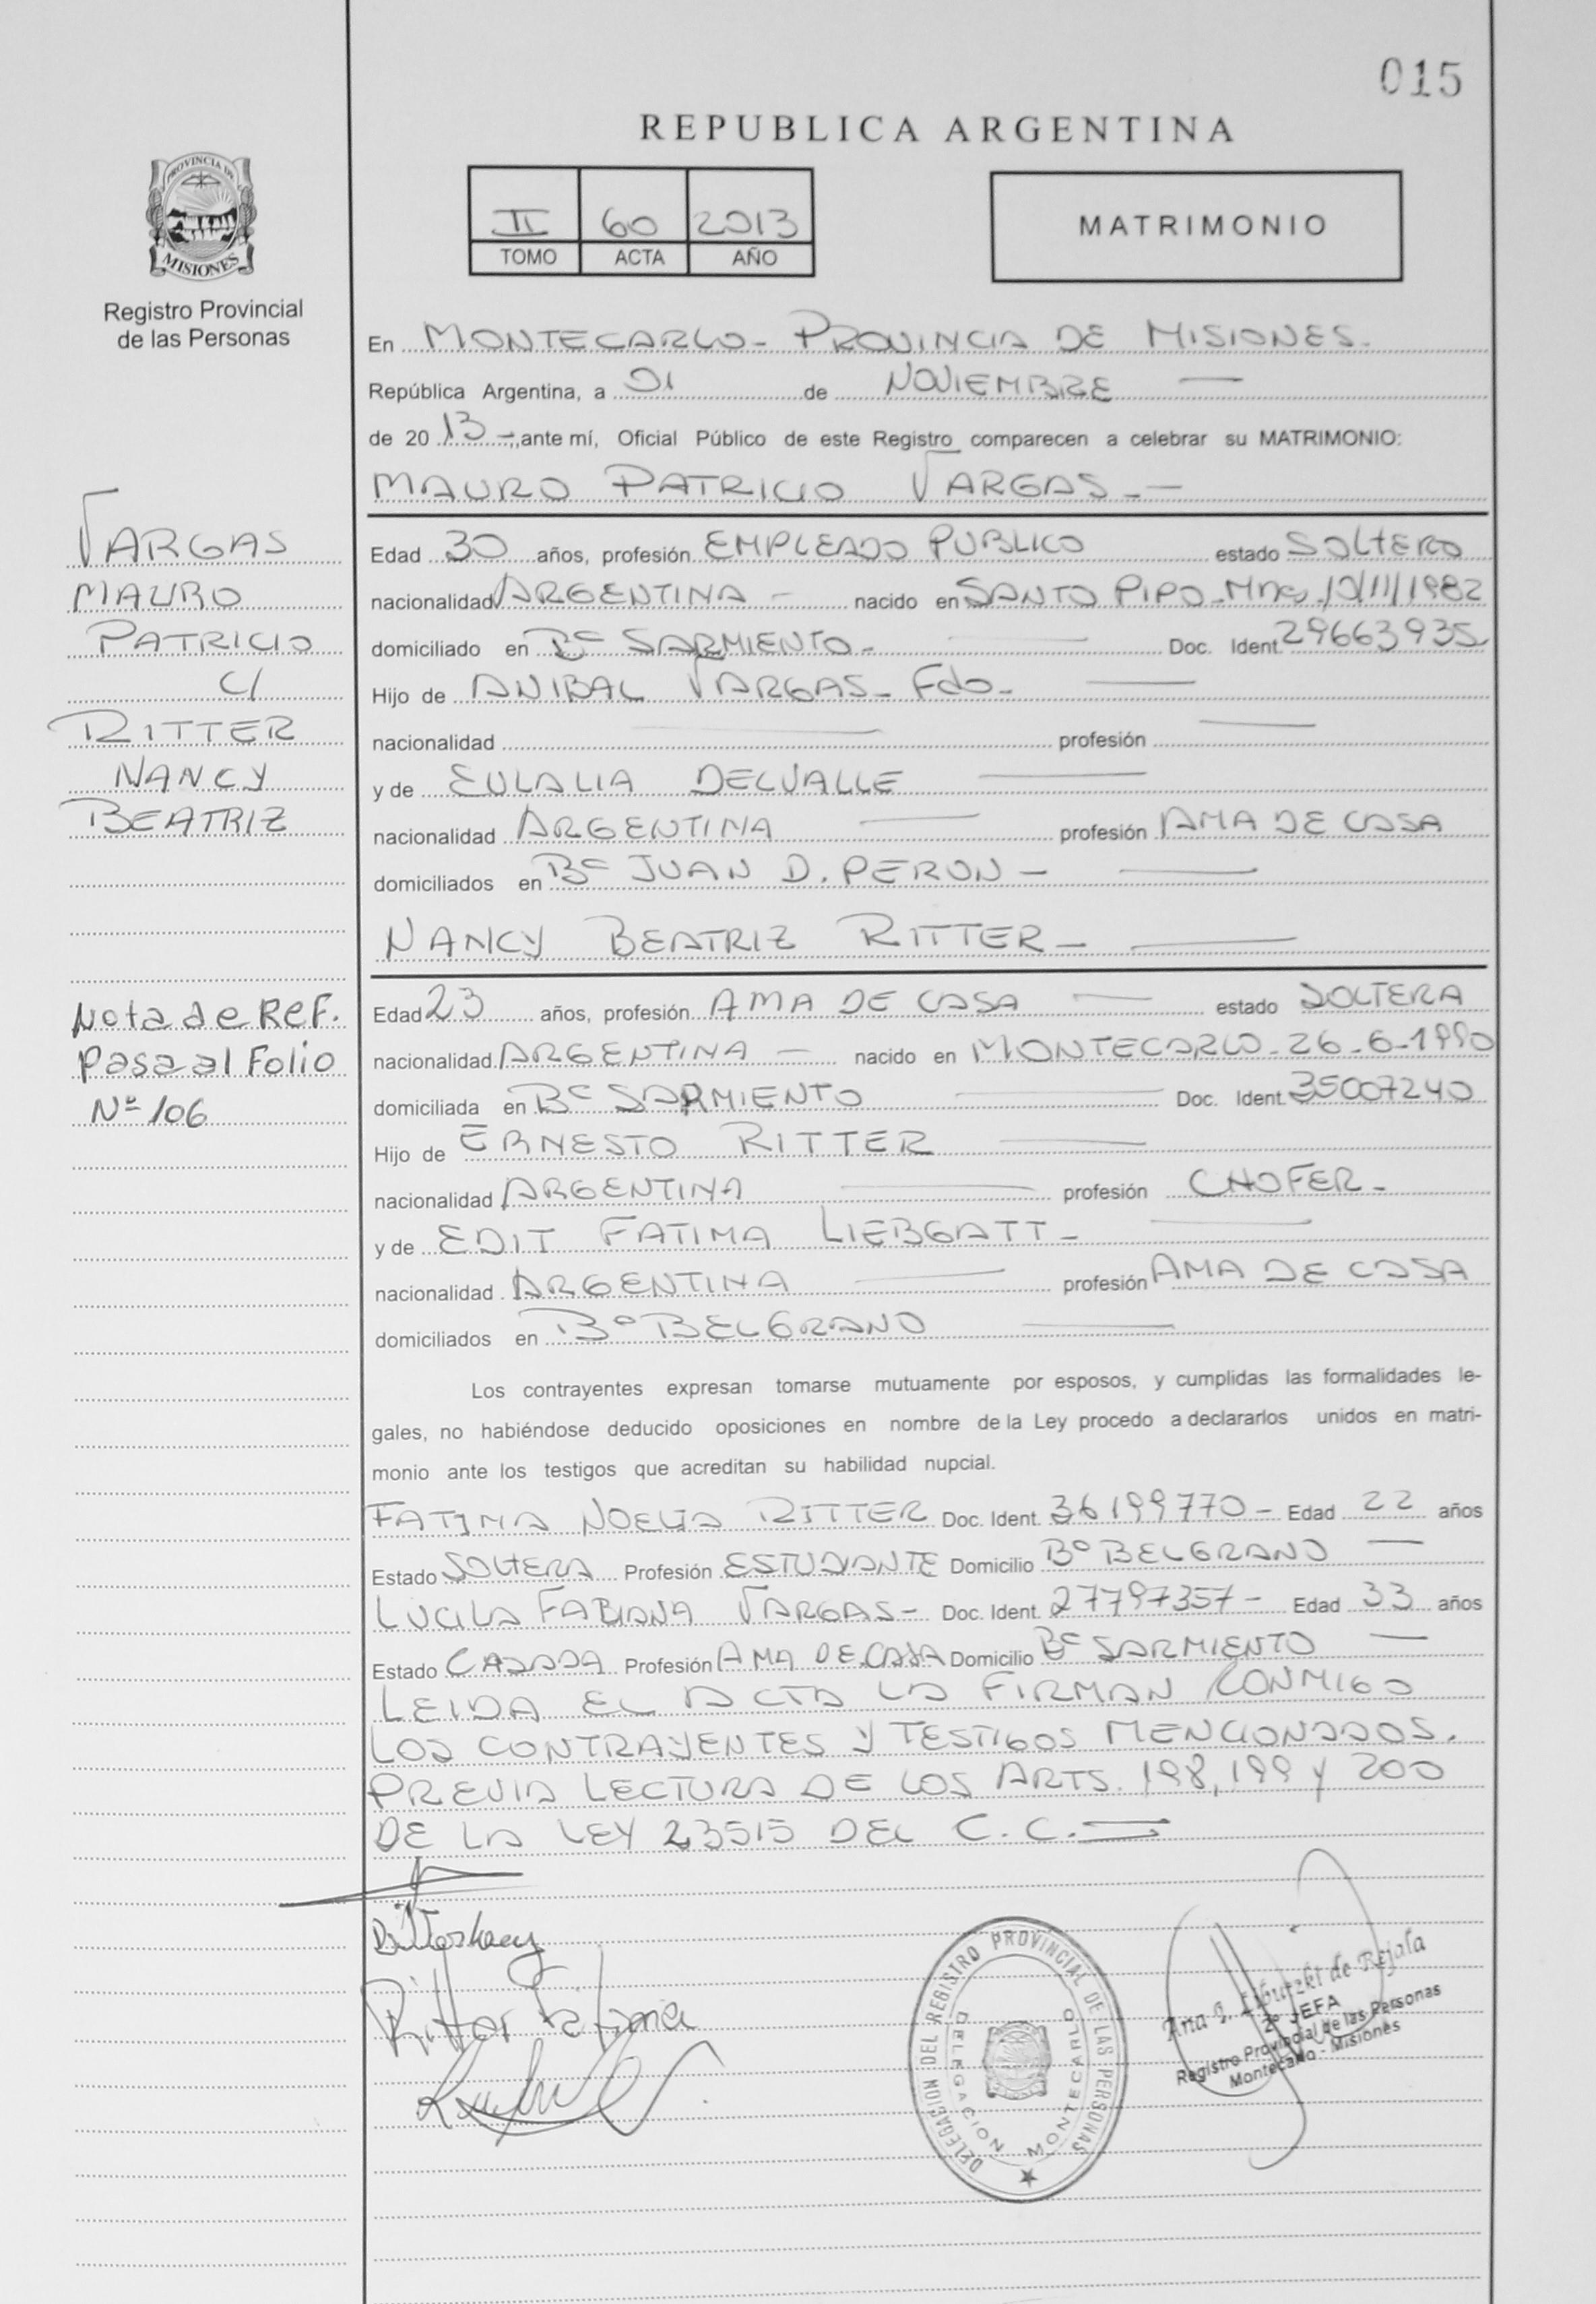 015
REPUBLICA ARGENTINA
PROVINCIA DE
MISIONES
Registro Provincial
de las Personas
II 60 2013
TOMO ACTA AÑO
MATRIMONIO
En MONTECARLO - PROVINCIA DE MISIONES.
República Argentina, a 01 de NOVIEMBRE —
de 20 13 -, ante mí, Oficial Público de este Registro comparecen a celebrar su MATRIMONIO:
MAURO PATRICIO VARGAS. —
VARGAS
MAURO
PATRICIO
C/
RITTER
NANCY
BEATRIZ
Edad 30 años, profesión EMPLEADO PUBLICO estado SOLTERO
nacionalidad ARGENTINA — nacido en SANTO PIPO - Mnes. 10/11/1982
domiciliado en Bº SARMIENTO - — Doc. Ident. 29663935
Hijo de ANIBAL VARGAS - Fdo - —
nacionalidad — profesión —
y de EULALIA DELVALLE —
nacionalidad ARGENTINA — profesión AMA DE CASA
domiciliados en Bº JUAN D. PERON - —
NANCY BEATRIZ RITTER - —
Nota de Ref.
Pasa al Folio
Nº 106
Edad 23 años, profesión AMA DE CASA — estado SOLTERA
nacionalidad ARGENTINA — nacido en MONTECARLO - 26-6-1990
domiciliada en Bº SARMIENTO — Doc. Ident. 35007240
Hijo de ERNESTO RITTER —
nacionalidad ARGENTINA — profesión CHOFER -
y de EDIT FATIMA LIEBGATT - —
nacionalidad ARGENTINA — profesión AMA DE CASA
domiciliados en Bº BELGRANO —
Los contrayentes expresan tomarse mutuamente por esposos, y cumplidas las formalidades le-
gales, no habiéndose deducido oposiciones en nombre de la Ley procedo a declararlos unidos en matri-
monio ante los testigos que acreditan su habilidad nupcial.
FATIMA NOELIA RITTER Doc. Ident. 36199770 - Edad 22 años
Estado SOLTERA Profesión ESTUDIANTE Domicilio Bº BELGRANO —
LUCILA FABIANA VARGAS - Doc. Ident. 27797357 - Edad 33 años
Estado CASADA Profesión AMA DE CASA Domicilio Bº SARMIENTO —
LEIDA EL ACTA LA FIRMAN CONMIGO
LOS CONTRAYENTES Y TESTIGOS MENCIONADOS.
PREVIA LECTURA DE LOS ARTS. 198, 199 Y 200
DE LA LEY 23515 DEL C.C. —
Ritter Fatima
DELEGACION DEL REGISTRO PROVINCIAL DE LAS PERSONAS
DELEGACION MONTECARLO
Ana de Rejala
2º JEFA
Registro Provincial de las Personas
Montecarlo - Misiones